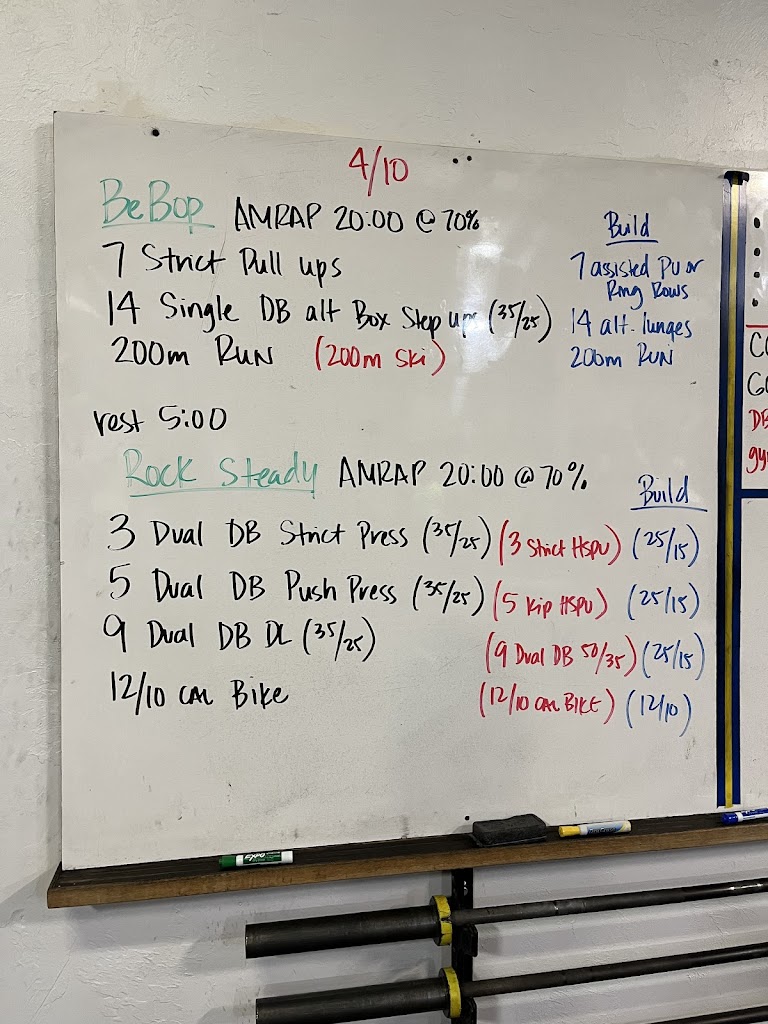 4/10
BeBop AMRAP 20:00 @ 70%
7 Strict Pull ups
14 Single DB alt Box Step ups (35/25)
200m RUN (200m Ski)
Build
7 assisted PU or
Ring Rows
14 alt. lunges
200m RUN
rest 5:00
Rock Steady AMRAP 20:00 @ 70%
Build
3 Dual DB Strict Press (35/25) (3 Strict HSPU) (25/15)
5 Dual DB Push Press (35/25) (5 Kip HSPU) (25/15)
9 Dual DB DL (35/25) (9 Dual DB 50/35) (25/15)
12/10 CAL Bike (12/10 CAL BIKE) (12/10)
DB
EXPO